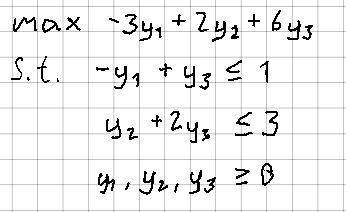 max -3y₁ + 2y₂ + 6y₃
s.t. -y₁ + y₃ ≤ 1
y₂ + 2y₃ ≤ 3
y₁, y₂, y₃ ≥ 0